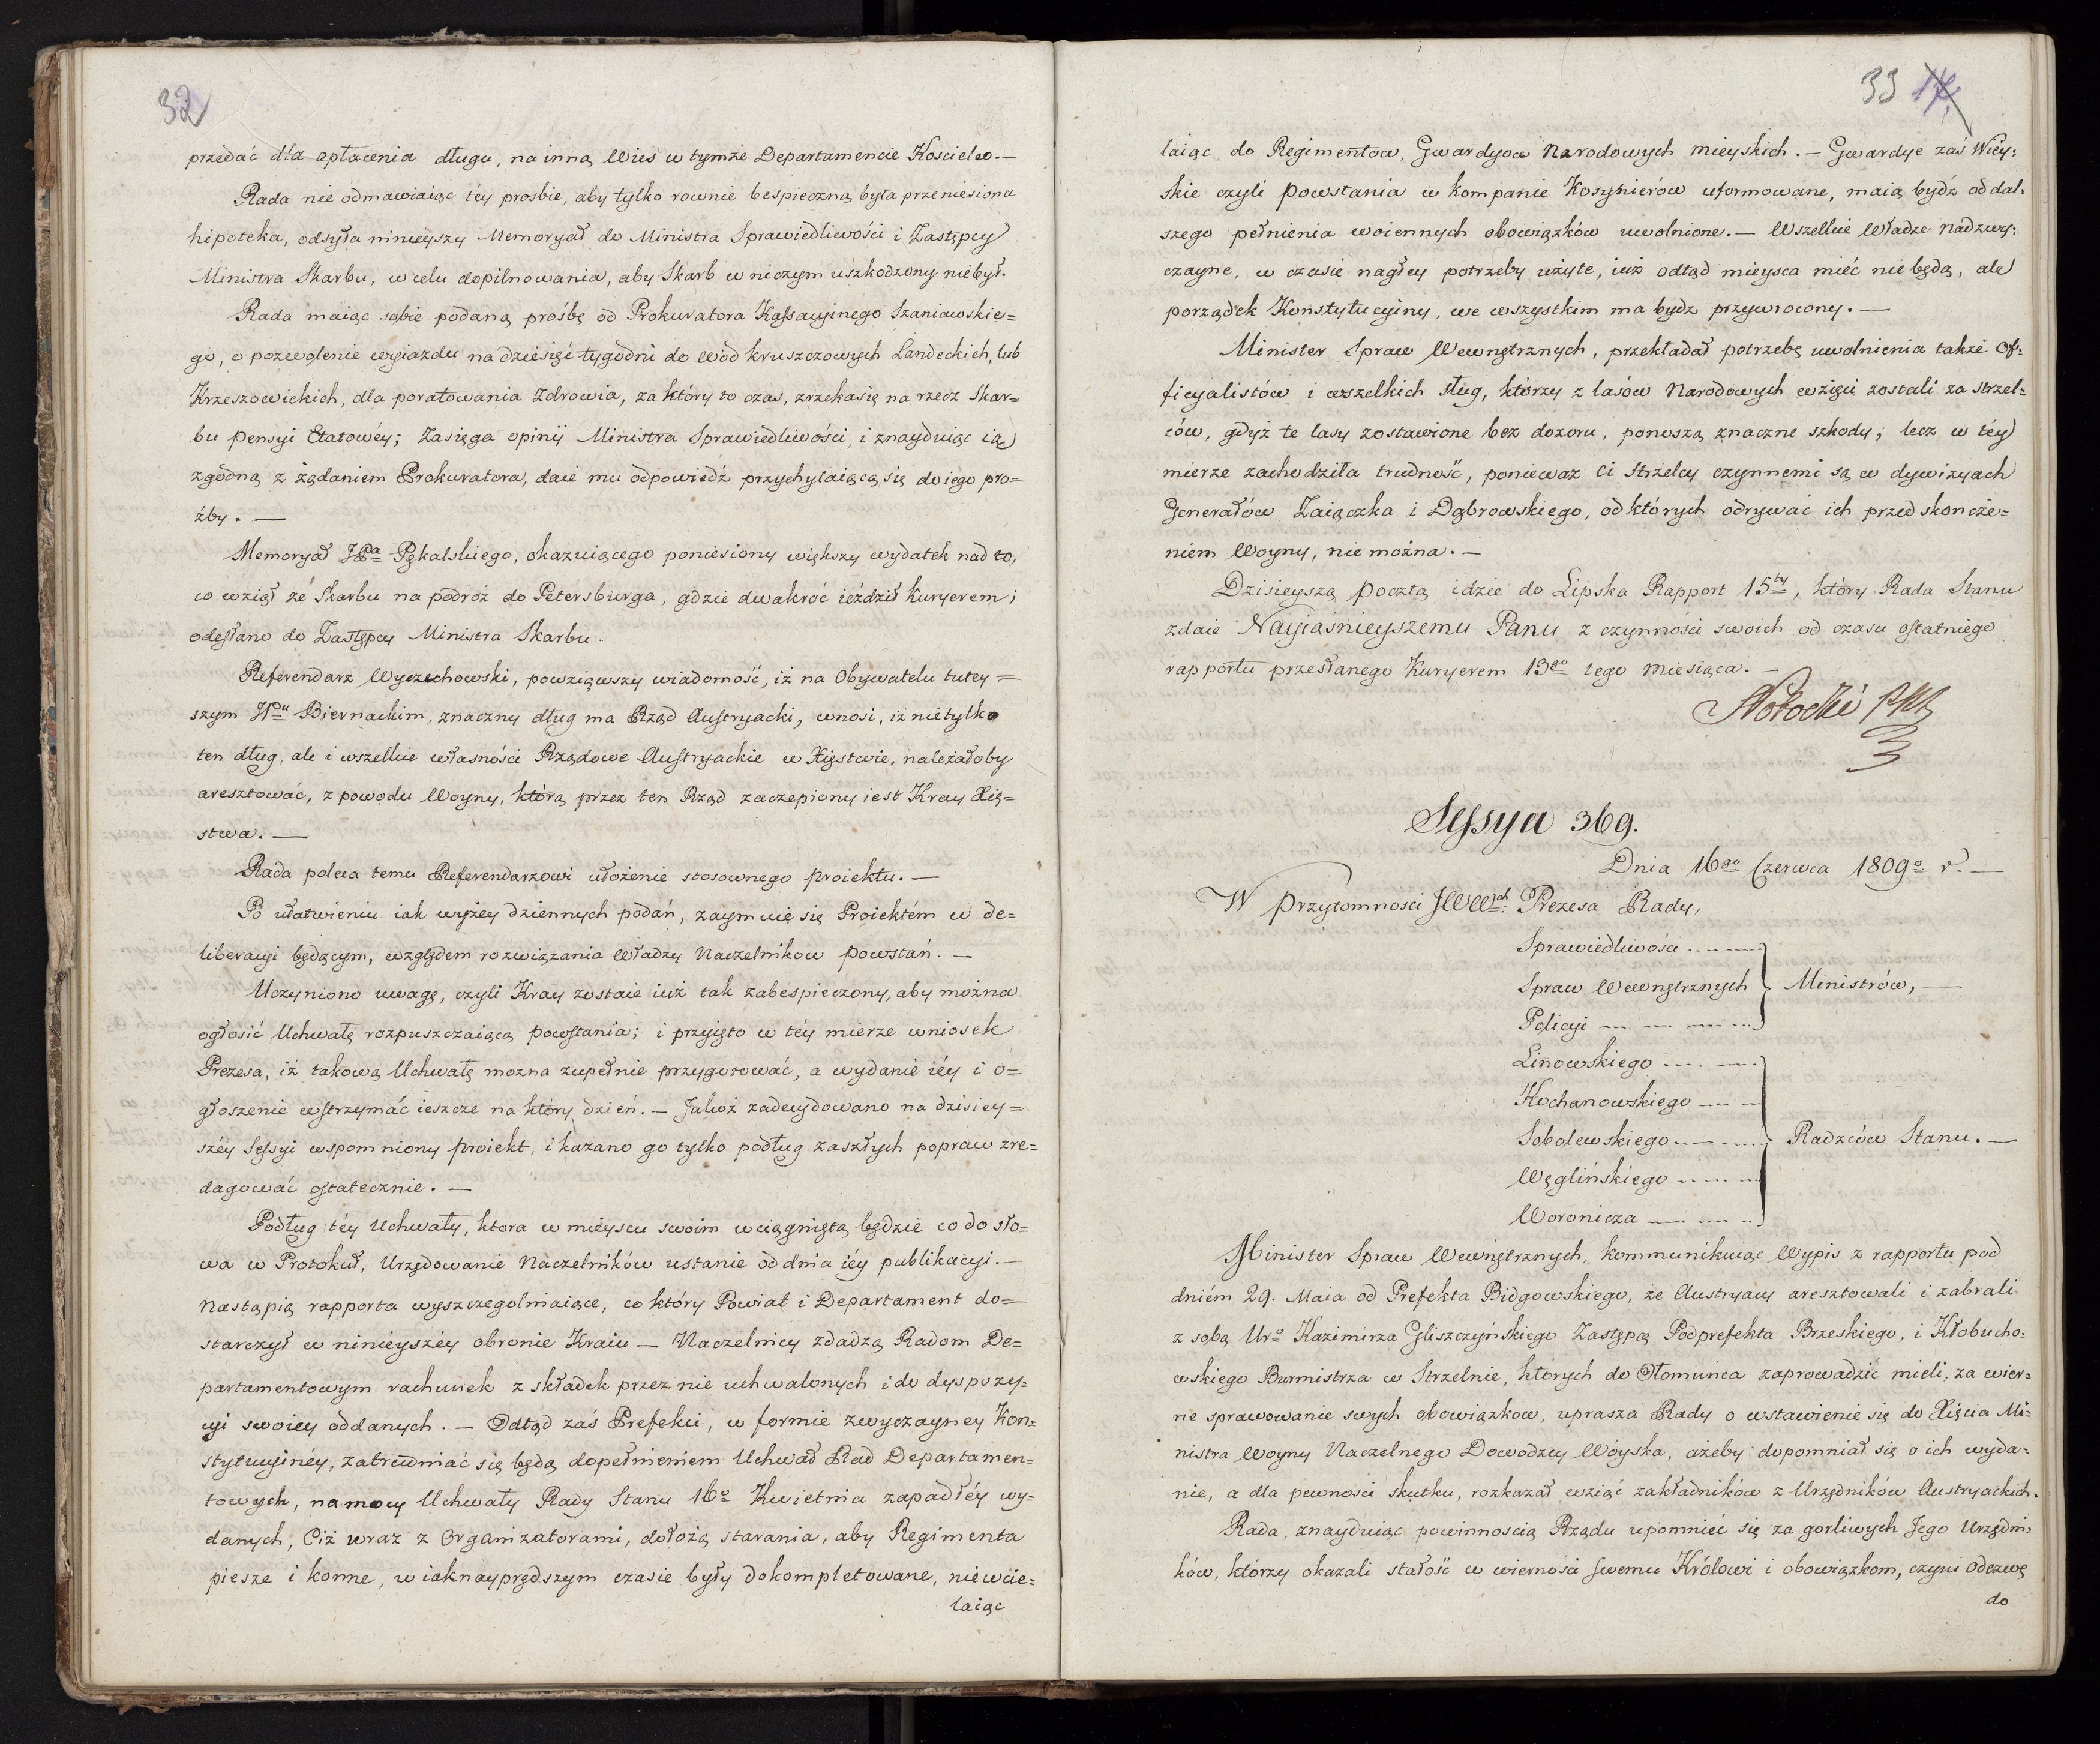 32
przedać dla opłacenia długu, na inną Wieś w tymże Departamencie Kościelec.—
Rada nie odmawiaiąc téy prosbie, aby tylko rownie bespieczną była przeniesiona
hipoteka, odsyła ninieyszy Memoryał do Ministra Sprawiedliwości i Zastępcy
Ministra Skarbu, w celu dopilnowania, aby Skarb w niczym uszkodzony niebył.
Rada maiąc sobie podaną prośbę od Prokuratora Kassacyinego Szaniawskie=
go, o pozwolenie wyiazdu na dziesięć tygodni do wód kruszczowych Landeckich, lub
Krzeszowickich, dla poratowania Zdrowia, za który to czas, zrzeka się na rzecz Skar=
bu pensyi Etatowéy; Zasięga opinij Ministra Sprawiedliwości, i znayduiąc ią
zgodną z żądaniem Prokuratora, daie mu odpowiedź przychylaiącą się do iego pro=
źby. —
Memoryał JPa Pękalskiego, okazuiącego poniesiony większy wydatek nad to,
co wziął ze Skarbu na podróż do Petersburga, gdzie dwakroć ieździł Kuryerem;
odesłano do Zastępcy Ministra Skarbu.
Referendarz Wyczechowski, powziąwszy wiadomość, iż na Obywatelu tutey=
szym JPu Biernackim, znaczny dług ma Rząd Austryacki, wnosi, iż nietylko
ten dług, ale i wszelkie własności Rządowe Austryackie w Xięstwie, należałoby
aresztować, z powodu Woyny, którą przez ten Rząd zaczepiony iest Kray Xię=
stwa. —
Rada poleca temu Referendarzowi ułożenie stosownego proiektu. —
Po ułatwieniu iak wyżey dziennych podań, zaymuie się Proiektém w de=
liberacyi będącym, względem rozwiązania Władzy Naczelnikow powstań. —
Uczyniono uwagę, czyli Kray zostaie iuż tak zabespieczony, aby można
ogłosić Uchwałę rozpuszczaiącą powstania; i przyięto w téy mierze wniosek
Prezesa, iż takową Uchwałę mozna zupełnie przygotować, a wydanie iéy i o=
głoszenie wstrzymać ieszcze na który dzień. — Jakoż zadecydowano na dzisiey=
széy Sessyi wspomniony proiekt, i kazano go tylko podług zaszłych popraw zre=
dagować ostatecznie. —
Podług téy Uchwały, ktora w mieyscu swoim wciągniętą będzie co do sło=
wa w Protokuł, Urzędowanie Naczelników ustanie od dnia iéy publikacyi. —
Nastąpią rapporta wyszczegolniaiące, co który Powiat i Departament do=
starczył w ninieyszéy obronie Kraiu — Naczelnicy zdadzą Radom De=
partamentowym rachunek z składek przez nie uchwalonych i do dyspozy=
cyi swoiey oddanych. — Odtąd zaś Prefekci, w formie zwyczayney Kon=
stytucyinéy, zatrudniać się będą dopełnieniem Uchwał Rad Departamen=
towych, na mocy Uchwały Rady Stanu 16o Kwietnia zapadłéy wy=
danych, Ciż wraz z Organizatorami, dołożą starania, aby Regimenta
piesze i konne, w iaknayprędszym czasie były dokompletowane, niewcie=
laiąc
33 17
laiąc do Regimentow, Gwardyow Narodowych mieyskich. — Gwardye zaś Wiey=
skie czyli powstania w kompanie Kosynierów uformowane, maią bydź od dal=
szego pełnienia woiennych obowiązków uwolnione. — Wszelkie Władze nadzwy=
czayne, w czasie nagłey potrzeby użyte, iuż odtąd mieysca mieć nie będą, ale
porządek Konstytucyiny, we wszystkim ma bydz przywrocony. —
Minister Spraw Wewnętrznych, przekładał potrzebę uwolnienia także Of=
ficyalistów i wszelkich sług, którzy z lasów Narodowych wzięci zostali za Strzel=
ców, gdyż te lasy zostawione bez dozoru, ponoszą znaczne szkody; lecz w téy
mierze zachodziła trudność, poniewaz ci Strzelcy czynnemi są w dywizyach
Generałów Zaiączka i Dąbrowskiego, od których odrywać ich przed skończe=
niem Woyny, nie można. —
Dzisieyszą pocztą idzie do Lipska Rapport 15ty, który Rada Stanu
zdaie Nayiaśnieyszemu Panu z czynnosci swoich od czasu ostatniego
rapportu przesłanego Kuryerem 13go tego miesiąca. —
Sessya 369.
Dnia 16go Czerwca 1809o r. —
W Przytomnosci JWWch: Prezesa Rady,
Sprawiedliwości
Spraw Wewnętrznych } Ministrów, —
Policyi
Linowskiego
Kochanowskiego
Sobolewskiego } Radzców Stanu. —
Węglińskiego
Woronicza
Minister Spraw Wewnętrznych, kommunikuiąc Wypis z rapportu pod
dniém 29. Maia od Prefekta Bidgowskiego, że Austryacy aresztowali i zabrali
z sobą Uro Kazimirza Gliszczyńskiego Zastępcę Podprefekta Brzeskiego, i Kłobucho=
wskiego Burmistrza w Strzelnie, których do Ołomuńca zaprowadzić mieli, za wier=
ne sprawowanie swych obowiązkow, uprasza Rady o wstawienie się do Xięcia Mi=
nistra Woyny Naczelnego Dowodzcy Woyska, ażeby dopomniał się o ich wyda=
nie, a dla pewnosci skutku, rozkazał wziąć zakładników z Urzędników Austryackich.
Rada, znayduiąc powinnoscią Rządu upomnieć się za gorliwych Jego Urzędni=
ków, którzy okazali stałość w wierności swemu Królowi i obowiązkom, czyni odezwę
do